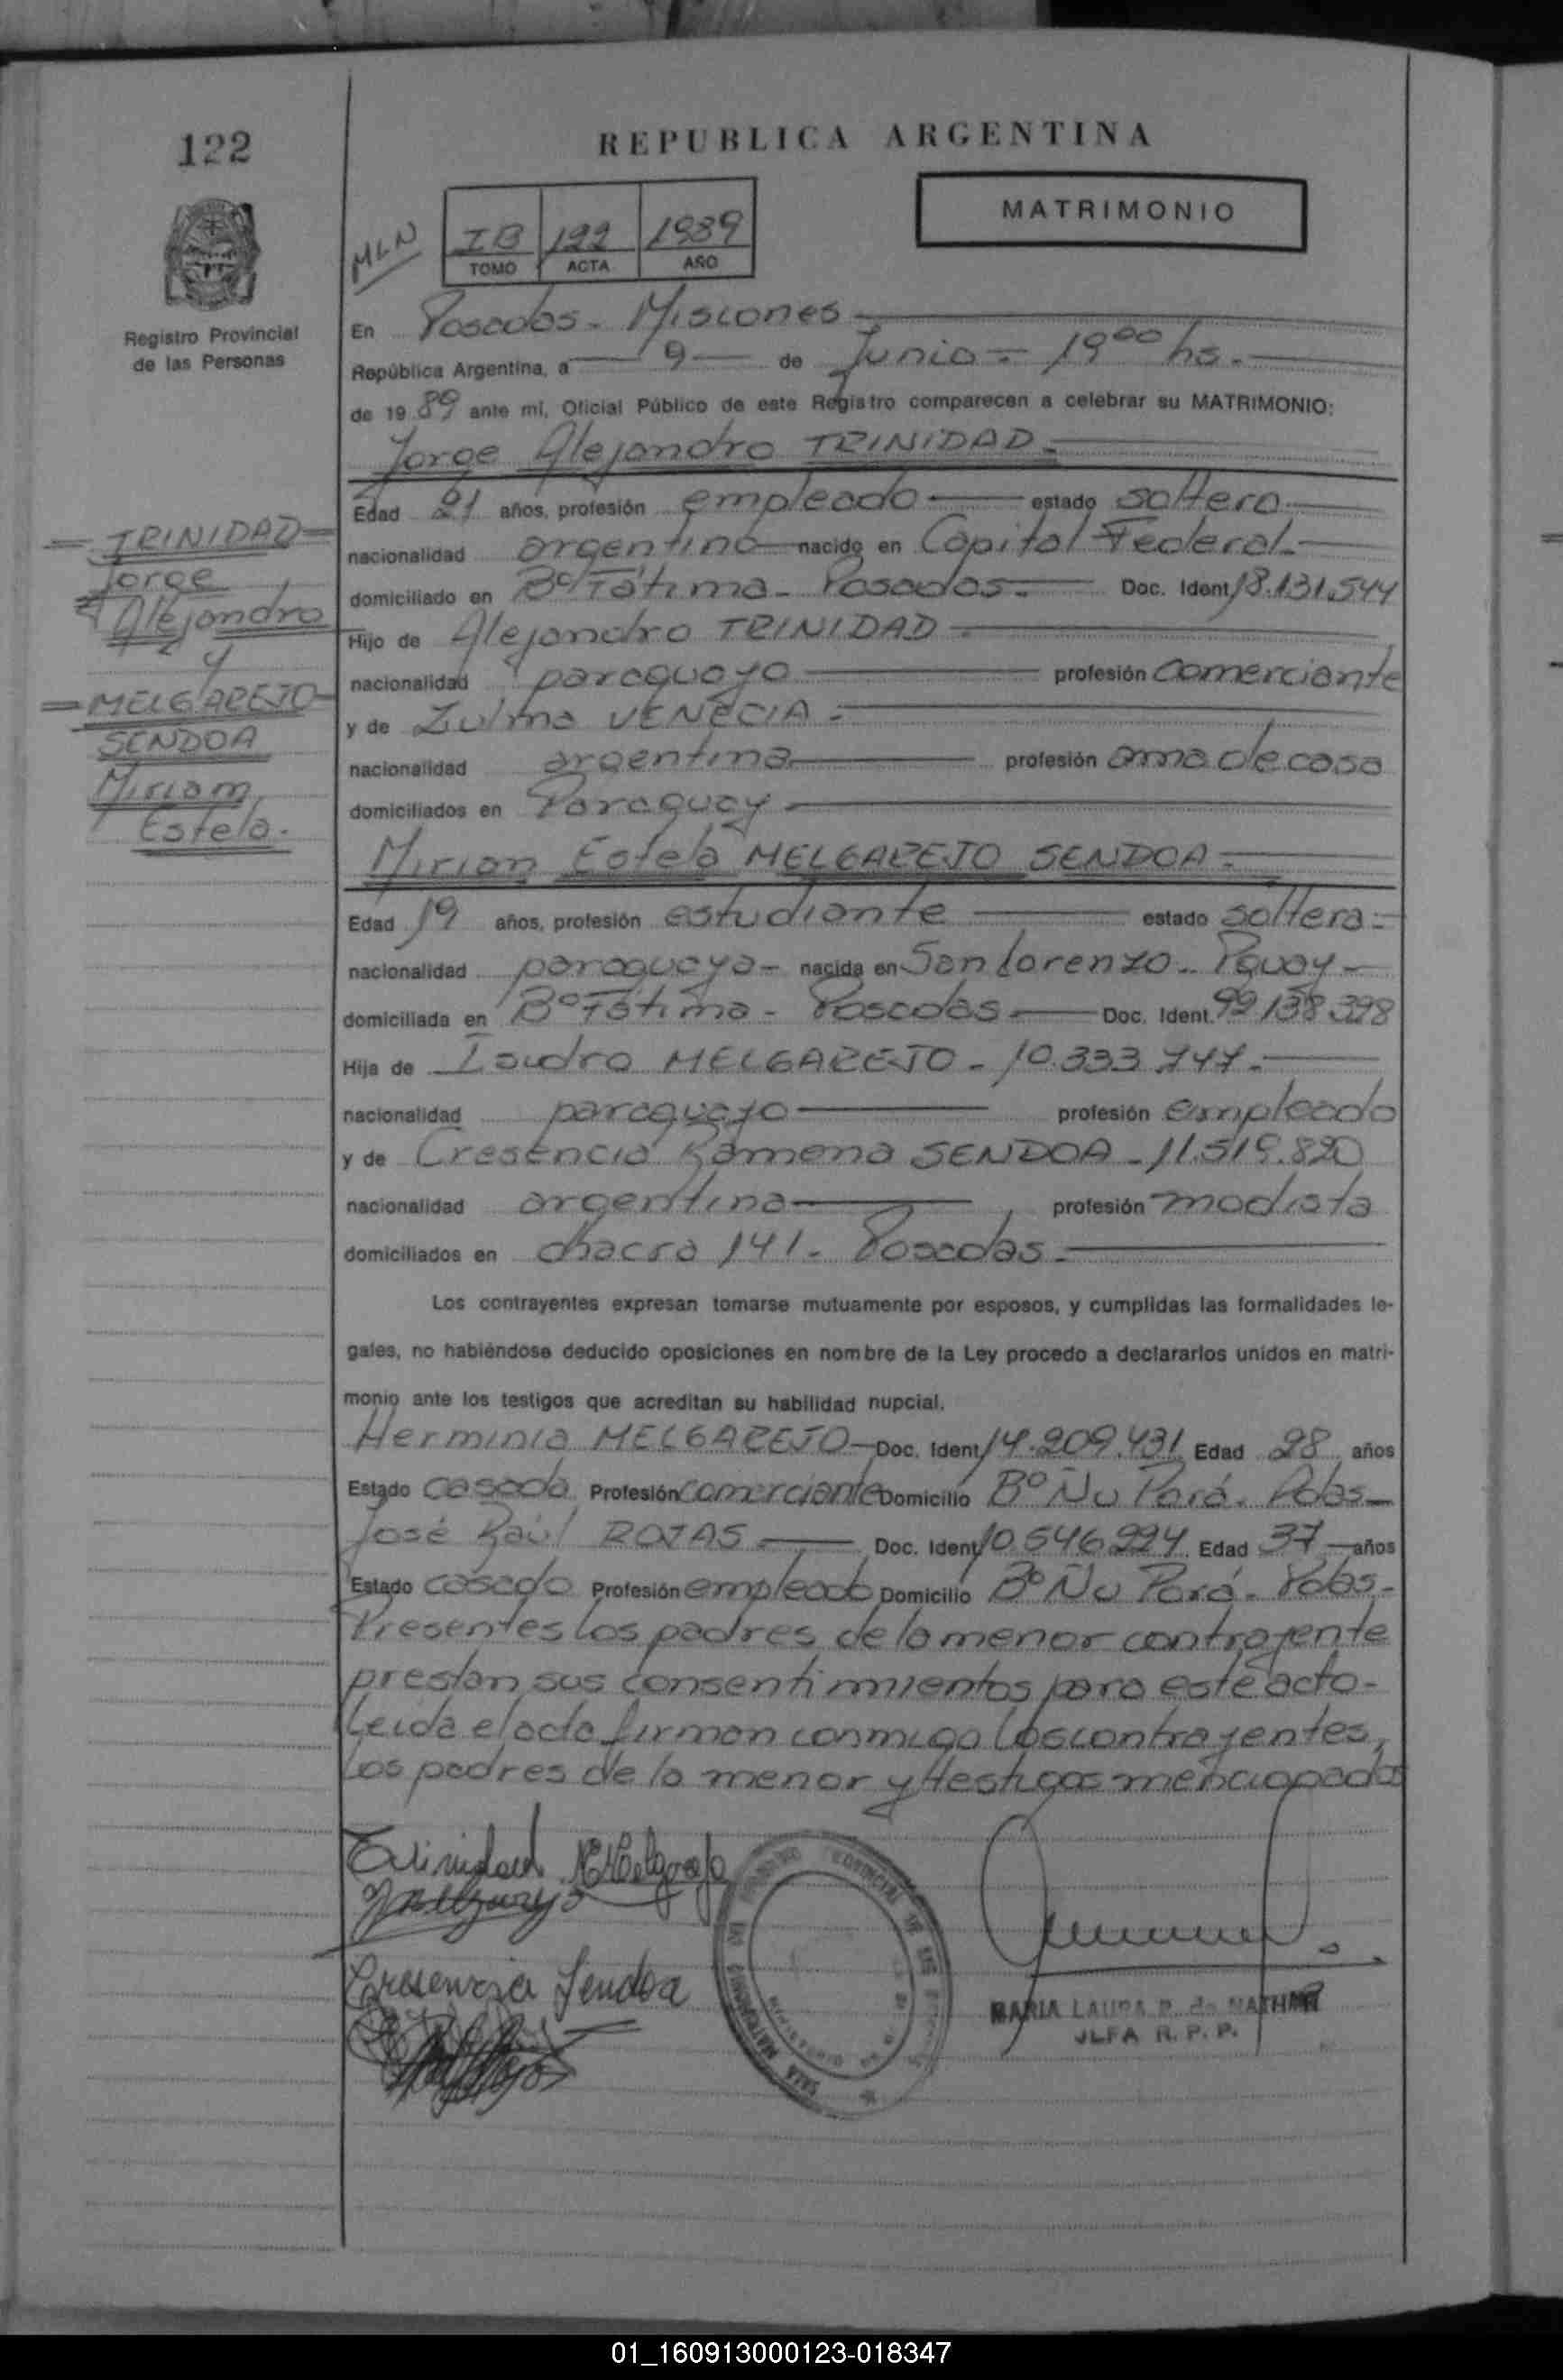 122
REPUBLICA ARGENTINA
MATRIMONIO
MLN
IB 122 1989
TOMO ACTA AÑO
Registro Provincial
de las Personas
En Posadas - Misiones
República Argentina, a 9 de Junio - 19⁰⁰ hs.
de 1989 ante mi, Oficial Público de este Registro comparecen a celebrar su MATRIMONIO:
Jorge Alejandro TRINIDAD
Edad 21 años, profesión empleado estado soltero
nacionalidad argentino nacido en Capital Federal
domiciliado en Bº Fátima - Posadas - Doc. Ident 18.131.544
Hijo de Alejandro TRINIDAD
nacionalidad paraguayo profesión comerciante
y de Zulma VENECIA
nacionalidad argentina profesión ama de casa
domiciliados en Paraguay
TRINIDAD
Jorge
Alejandro
y
MELGAREJO
SENDOA
Miriam
Estela.
Mirian Estela MELGAREJO SENDOA
Edad 19 años, profesión estudiante estado soltera
nacionalidad paraguaya - nacida en San Lorenzo - Pguay
domiciliada en Bº Fátima - Posadas Doc. Ident. 92.138.398
Hija de Isidro MELGAREJO - 10.333.747
nacionalidad paraguayo profesión empleado
y de Cresencia Ramona SENDOA - 11.519.820
nacionalidad argentina profesión modista
domiciliados en chacra 141 - Posadas
Los contrayentes expresan tomarse mutuamente por esposos, y cumplidas las formalidades le-
gales, no habiéndose deducido oposiciones en nombre de la Ley procedo a declararlos unidos en matri-
monio ante los testigos que acreditan su habilidad nupcial.
Herminia MELGAREJO Doc. Ident 14.209.431 Edad 28 años
Estado casada Profesión comerciante Domicilio Bº Ñu Porá. Pdas
José Raúl ROJAS Doc. Ident 10.546.224 Edad 37 años
Estado casado Profesión empleado Domicilio Bº Ñu Porá - Pdas -
Presentes los padres de la menor contrayente
prestan sus consentimientos para este acto -
Leida el acta firman conmigo los contrayentes,
los padres de la menor y testigos mencionados
Trinidad Melgarejo
Cresencia Sendoa
MARIA LAURA P. de
JEFA R. P. P.
01_160913000123-018347